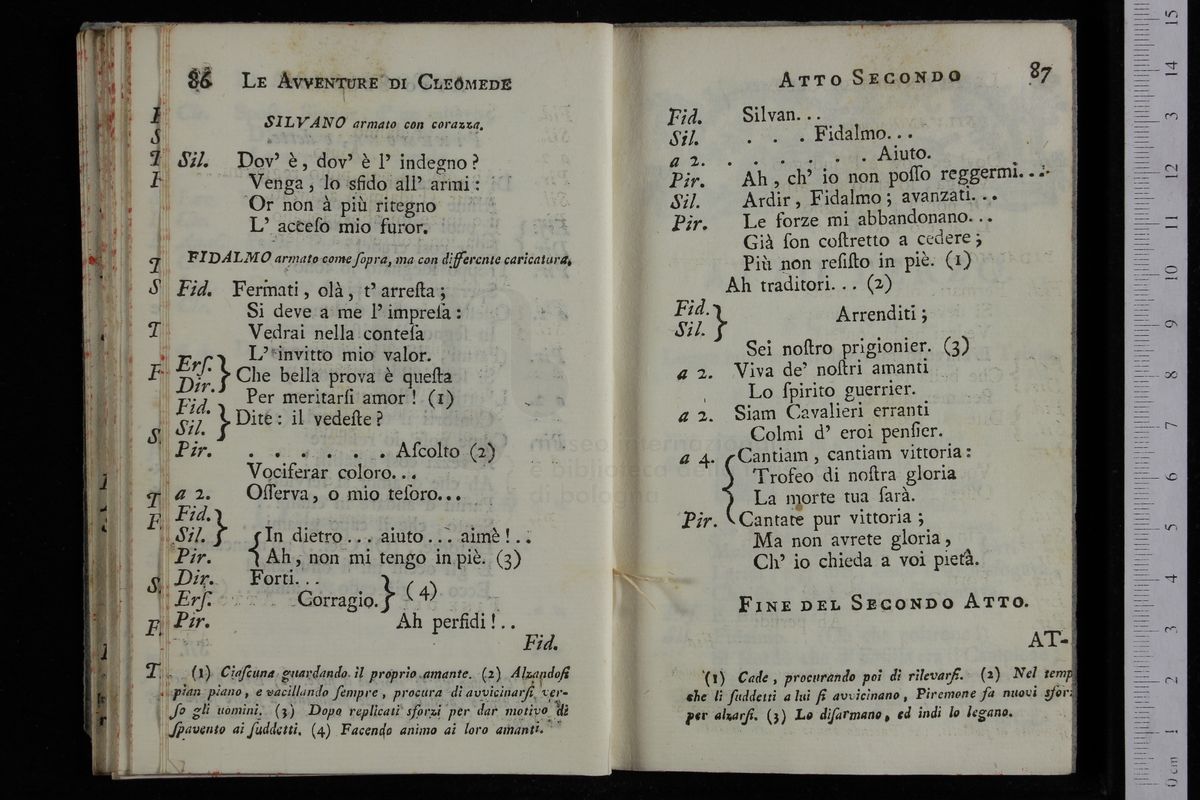 86 LE AVVENTURE DI CLEOMEDE
SILVANO armato con corazza.
Sil. Dov' è, dov' è l' indegno?
Venga, lo sfido all' armi:
Or non à più ritegno
L' acceſo mio furor.
FIDALMO armato come ſopra, ma con differente caricatura.
Fid. Fermati, olà, t' arreſta;
Si deve a me l' impreſa:
Vedrai nella conteſa
L' invitto mio valor.
Erſ. Dir. } Che bella prova è queſta
Per meritarſi amor! (1)
Fid. Sil. } Dite: il vedeſte?
Pir. . . . . . . Aſcolto (2)
Vociferar coloro...
a 2. Oſſerva, o mio teſoro...
Fid. Sil. } { In dietro... aiuto... aimè!..
Pir. { Ah, non mi tengo in piè. (3)
Dir. Forti...
Erſ. Corragio. } (4)
Pir. Ah perfidi!..
Fid.
(1) Ciaſcuna guardando il proprio amante. (2) Alzandoſi
pian piano, e vacillando ſempre, procura di avvicinarſi ver-
ſo gli uomini. (3) Dopo replicati sforzi per dar motivo di
ſpavento ai ſuddetti. (4) Facendo animo ai loro amanti.
ATTO SECONDO 87
Fid. Silvan...
Sil. . . . Fidalmo...
a 2. . . . . . . . Aiuto.
Pir. Ah, ch' io non poſſo reggermi...
Sil. Ardir, Fidalmo; avanzati...
Pir. Le forze mi abbandonano...
Già ſon coſtretto a cedere;
Più non reſiſto in piè. (1)
Ah traditori... (2)
Fid. Sil. } Arrenditi;
Sei noſtro prigionier. (3)
a 2. Viva de' noſtri amanti
Lo ſpirito guerrier.
a 2. Siam Cavalieri erranti
Colmi d' eroi penſier.
a 4. { Cantiam, cantiam vittoria:
Trofeo di noſtra gloria
La morte tua ſarà.
Pir. Cantate pur vittoria;
Ma non avrete gloria,
Ch' io chieda a voi pietà.
FINE DEL SECONDO ATTO.
AT-
(1) Cade, procurando poi di rilevarſi. (2) Nel temp
che li ſuddetti a lui ſi avvicinano, Piremone fa nuovi sfor
per alzarſi. (3) Lo diſarmano, ed indi lo legano.